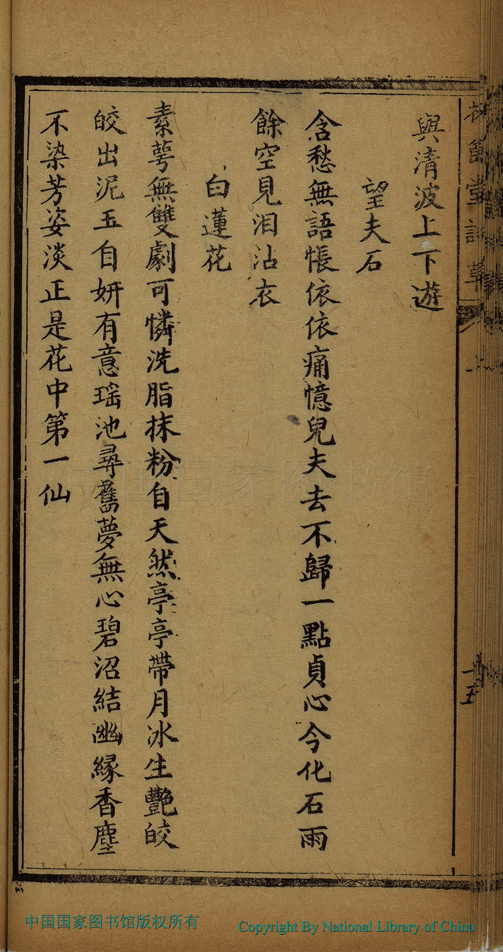 與清波上下遊
望夫石
含愁無語悵依依痛憶兒夫去不歸一點貞心今化石雨
餘空見泪沾衣
白蓮花
素萼無雙劇可憐洗脂抹粉自天然亭亭帶月冰生艷皎
皎出泥玉自妍有意瑶池尋舊夢無心碧沼結幽緣香塵
不染芳姿淡正是花中第一仙
中国国家图书馆版权所有
Copyright By National Library of China